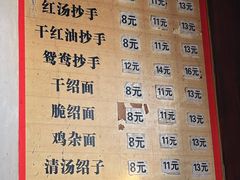 红汤抄手 8元 11元 13元
干红油抄手 8元 11元 13元
鸳鸯抄手 12元 14元 16元
干绍面 8元 11元 13元
脆绍面 8元 11元 13元
鸡杂面 8元 11元 13元
清汤绍子 8元 11元 13元